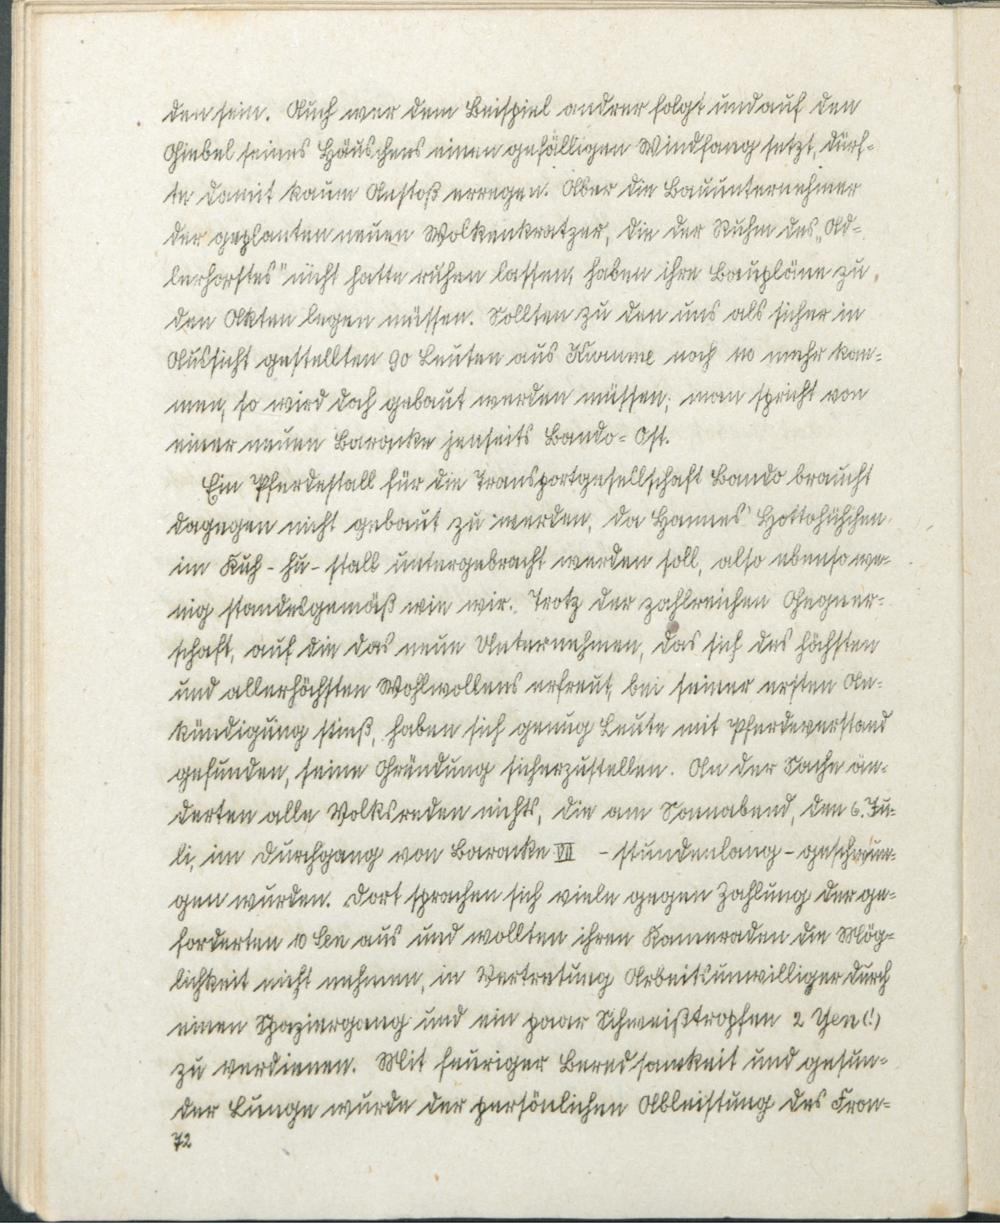 den sein. Auch wer dem Beispiel andrer folgt und auf den
Giebel seines Häuschens einen gefälligen Windfang setzt, dürf-
te damit kaum Anstoß erregen. Aber die Bauunternehmer
der geplanten neuen Wolkenkratzer, die der Ruhm des „Ad-
lerhorstes" nicht hatte ruhen lassen, haben ihre Baupläne zu
den Akten legen müssen. Sollten zu den uns als sicher in
Aussicht gestellten 90 Leuten aus Kurume noch 10 mehr kom-
men, so wird doch gebaut werden müssen; man spricht von
einer neuen Baracke jenseits Bando-Ost.
Ein Pferdestall für die Transportgesellschaft Bando braucht
dagegen nicht gebaut zu werden, da Hannes' Hottohühchen
im Kuh-hu-stall untergebracht werden soll, also ebenso we-
nig standesgemäß wie wir. Trotz der zahlreichen Gegner-
schaft, auf die das neue Unternehmen, das sich des höchsten
und allerhöchsten Wohlwollens erfreut, bei seiner ersten An-
kündigung stieß, haben sich genug Leute mit Pferdeverstand
gefunden, seine Gründung sicherzustellen. An der Sache än-
derten alle Volksreden nichts, die am Sonnabend, den 6. Ju-
li, im Durchgang von Baracke VII - stundenlang - geschwun-
gen wurden. Dort sprachen sich viele gegen Zahlung der ge-
forderten 10 Sen aus und wollten ihren Kameraden die Mög-
lichkeit nicht nehmen, in Vertretung Arbeitsunwilliger durch
einen Spaziergang und ein paar Schweißtropfen 2 Yen (!)
zu verdienen. Mit feuriger Beredsamkeit und gesun-
der Lunge wurde der persönlichen Ableistung des Fron-
72